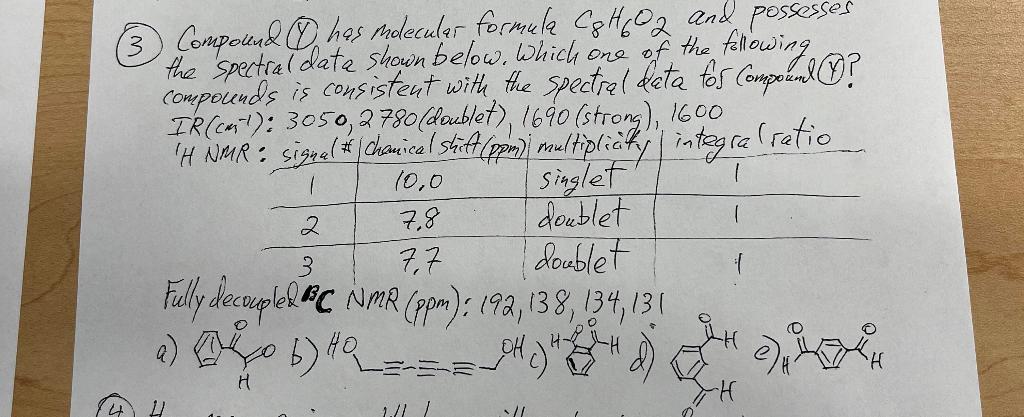 3 Compound Y has molecular formula C8H6O2 and possesses
the spectral data shown below. Which one of the following
compounds is consistent with the spectral data for Compound Y?
IR(cm⁻¹): 3050, 2780(doublet), 1690(strong), 1600
¹H NMR: signal # chemical shift (ppm) multiplicity integral ratio
1 10.0 singlet 1
2 7.8 doublet 1
3 7.7 doublet 1
Fully decoupled ¹³C NMR (ppm): 192, 138, 134, 131
a) O O H b) HO OH c) H O O H d) O H H O e) O H O H
4 H